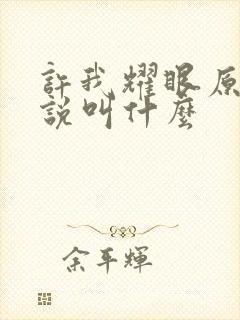 許我耀眼原
說叫什麼
余平輝